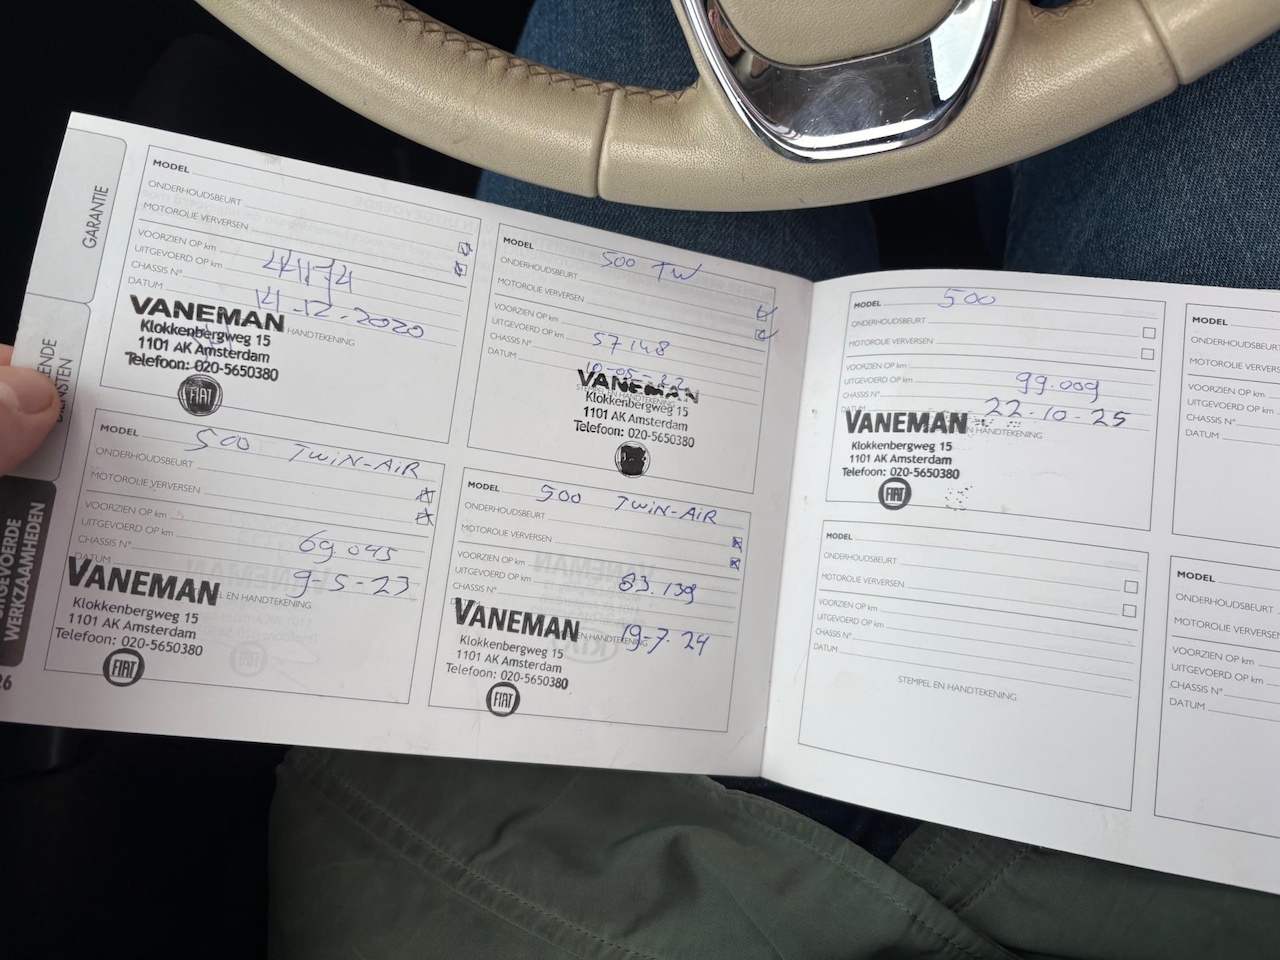 GARANTIE
DIENSTEN
UITGEVOERDE
WERKZAAMHEDEN
26
MODEL
ONDERHOUDSBEURT
MOTOROLIE VERVERSEN
VOORZIEN OP km
UITGEVOERD OP km
44174
CHASSIS N°
DATUM
14-12-2020
VANEMAN
HANDTEKENING
Klokkenbergweg 15
1101 AK Amsterdam
Telefoon: 020-5650380
FIAT
MODEL 500 TW
ONDERHOUDSBEURT
MOTOROLIE VERVERSEN
VOORZIEN OP km
UITGEVOERD OP km 57148
CHASSIS N°
DATUM 10-05-22
VANEMAN
Klokkenbergweg 15
1101 AK Amsterdam
Telefoon: 020-5650380
MODEL 500 TWIN-AIR
ONDERHOUDSBEURT
MOTOROLIE VERVERSEN
VOORZIEN OP km
UITGEVOERD OP km 69.045
CHASSIS N°
DATUM 9-5-23
VANEMAN
EN HANDTEKENING
Klokkenbergweg 15
1101 AK Amsterdam
Telefoon: 020-5650380
FIAT
MODEL 500 TWIN-AIR
ONDERHOUDSBEURT
MOTOROLIE VERVERSEN
VOORZIEN OP km
UITGEVOERD OP km 83.139
CHASSIS N°
19-7-24
VANEMAN
EN HANDTEKENING
Klokkenbergweg 15
1101 AK Amsterdam
Telefoon: 020-5650380
FIAT
MODEL 500
ONDERHOUDSBEURT
MOTOROLIE VERVERSEN
VOORZIEN OP km
UITGEVOERD OP km 99.009
CHASSIS N°
DATUM 22-10-25
VANEMAN
EN HANDTEKENING
Klokkenbergweg 15
1101 AK Amsterdam
Telefoon: 020-5650380
FIAT
MODEL
ONDERHOUDSBEURT
MOTOROLIE VERVERSEN
VOORZIEN OP km
UITGEVOERD OP km
CHASSIS N°
DATUM
STEMPEL EN HANDTEKENING
MODEL
ONDERHOUDSBEURT
MOTOROLIE VERVERSEN
VOORZIEN OP km
UITGEVOERD OP km
CHASSIS N°
DATUM
MODEL
ONDERHOUDSBEURT
MOTOROLIE VERVERSEN
VOORZIEN OP km
UITGEVOERD OP km
CHASSIS N°
DATUM